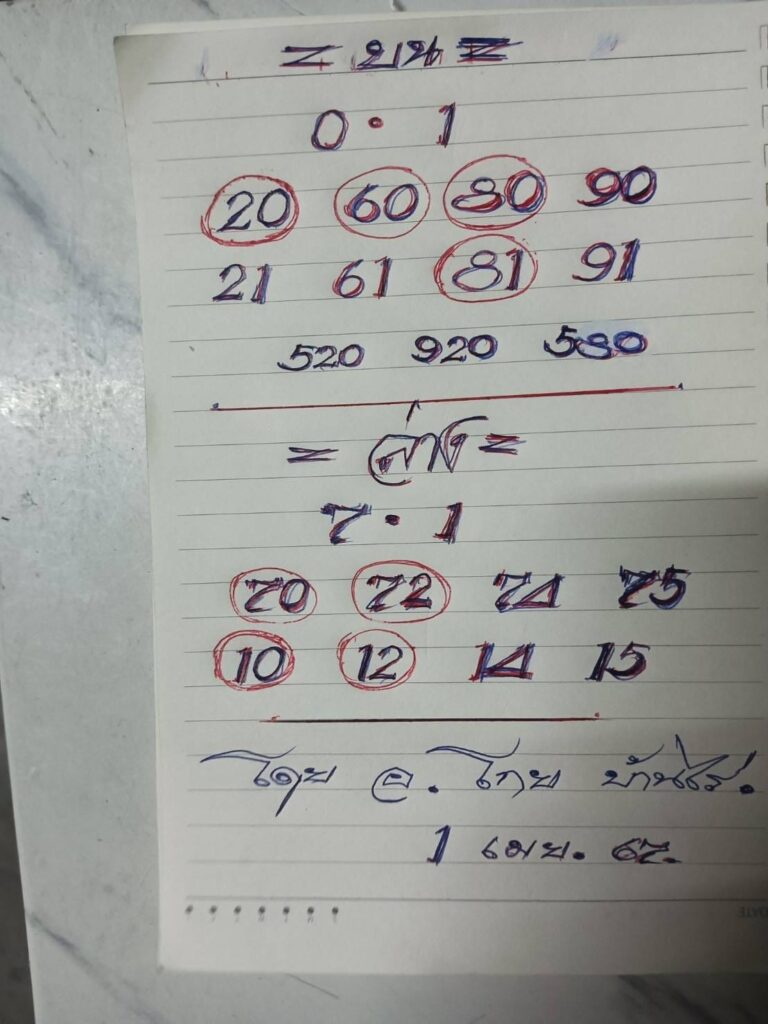 = บน =
0 • 1
20 60 80 90
21 61 81 91
520 920 580
= ล่าง =
7 • 1
70 72 74 75
10 12 14 15
โดย อ. โกย บ้านไร่.
1 เมย. 67.
DATE